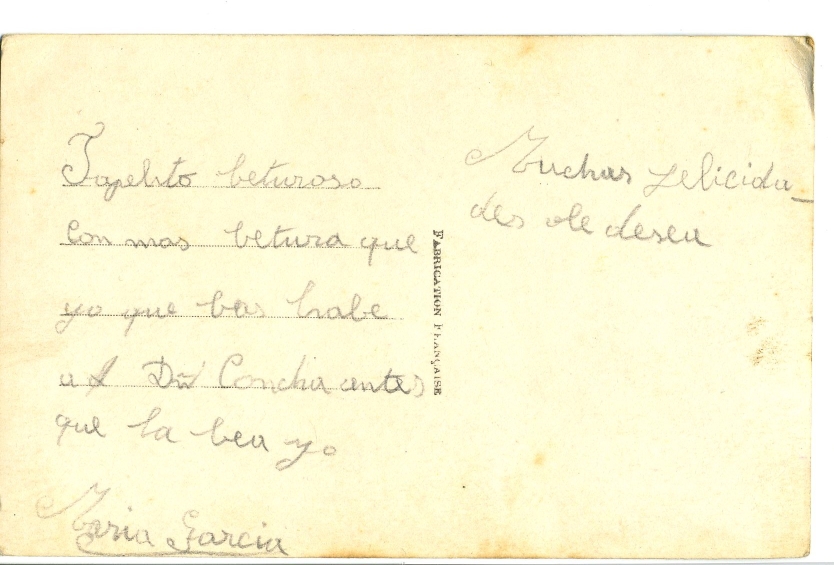 Papelito beturoso
Con mas betura que
yo que bas habe
a Dª Concha antes
que la bea yo
Maria Garcia
FABRICATION FRANÇAISE
Muchas felicida_
des le desea